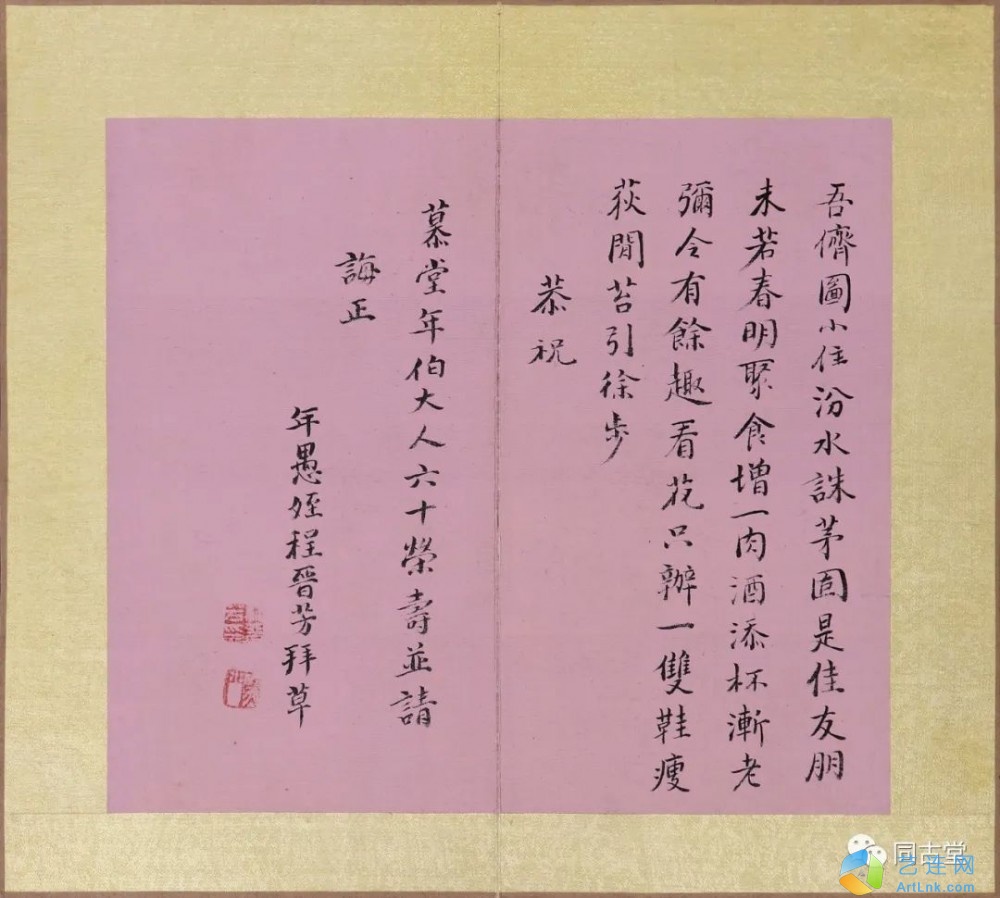 吾儕圖小住汾水誅茅固是佳友朋
未若春明聚食增一肉酒添杯漸老
彌令有餘趣看花只辦一雙鞋瘦
荻閒苔引徐步
恭祝
慕堂年伯大人六十榮壽並請
誨正
年愚姪程晉芳拜草
同古堂
艺连网
ArtLnk.com